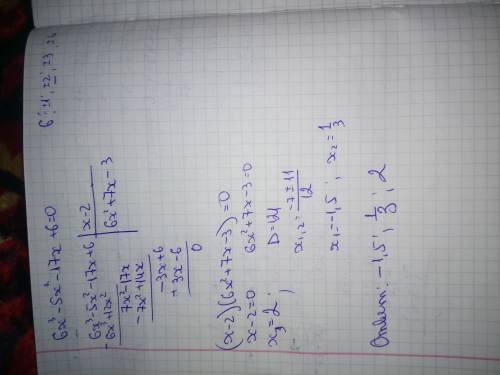 6x³-5x²-17x+6=0
6: ±1; ±2; ±3; ±6
6x³-5x²-17x+6 | x-2
-6x³+12x² | 6x²+7x-3
7x²-17x
-7x²+14x
-3x+6
+3x-6
0
(x-2)(6x²+7x-3)=0
x-2=0 6x²+7x-3=0
x₃=2; D=121
x₁,₂=(-7±11)/12
x₁=-1,5; x₂=1/3
Ответ: -1,5; 1/3; 2